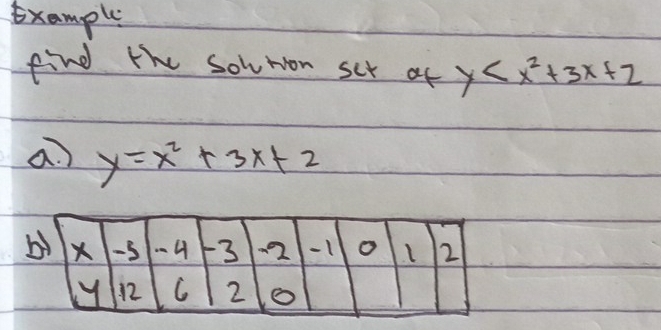 Example:
find the solution set of y < x² + 3x + 2
a.) y = x² + 3x + 2
b) x -5 -4 -3 -2 -1 0 1 2
y 12 6 2 0